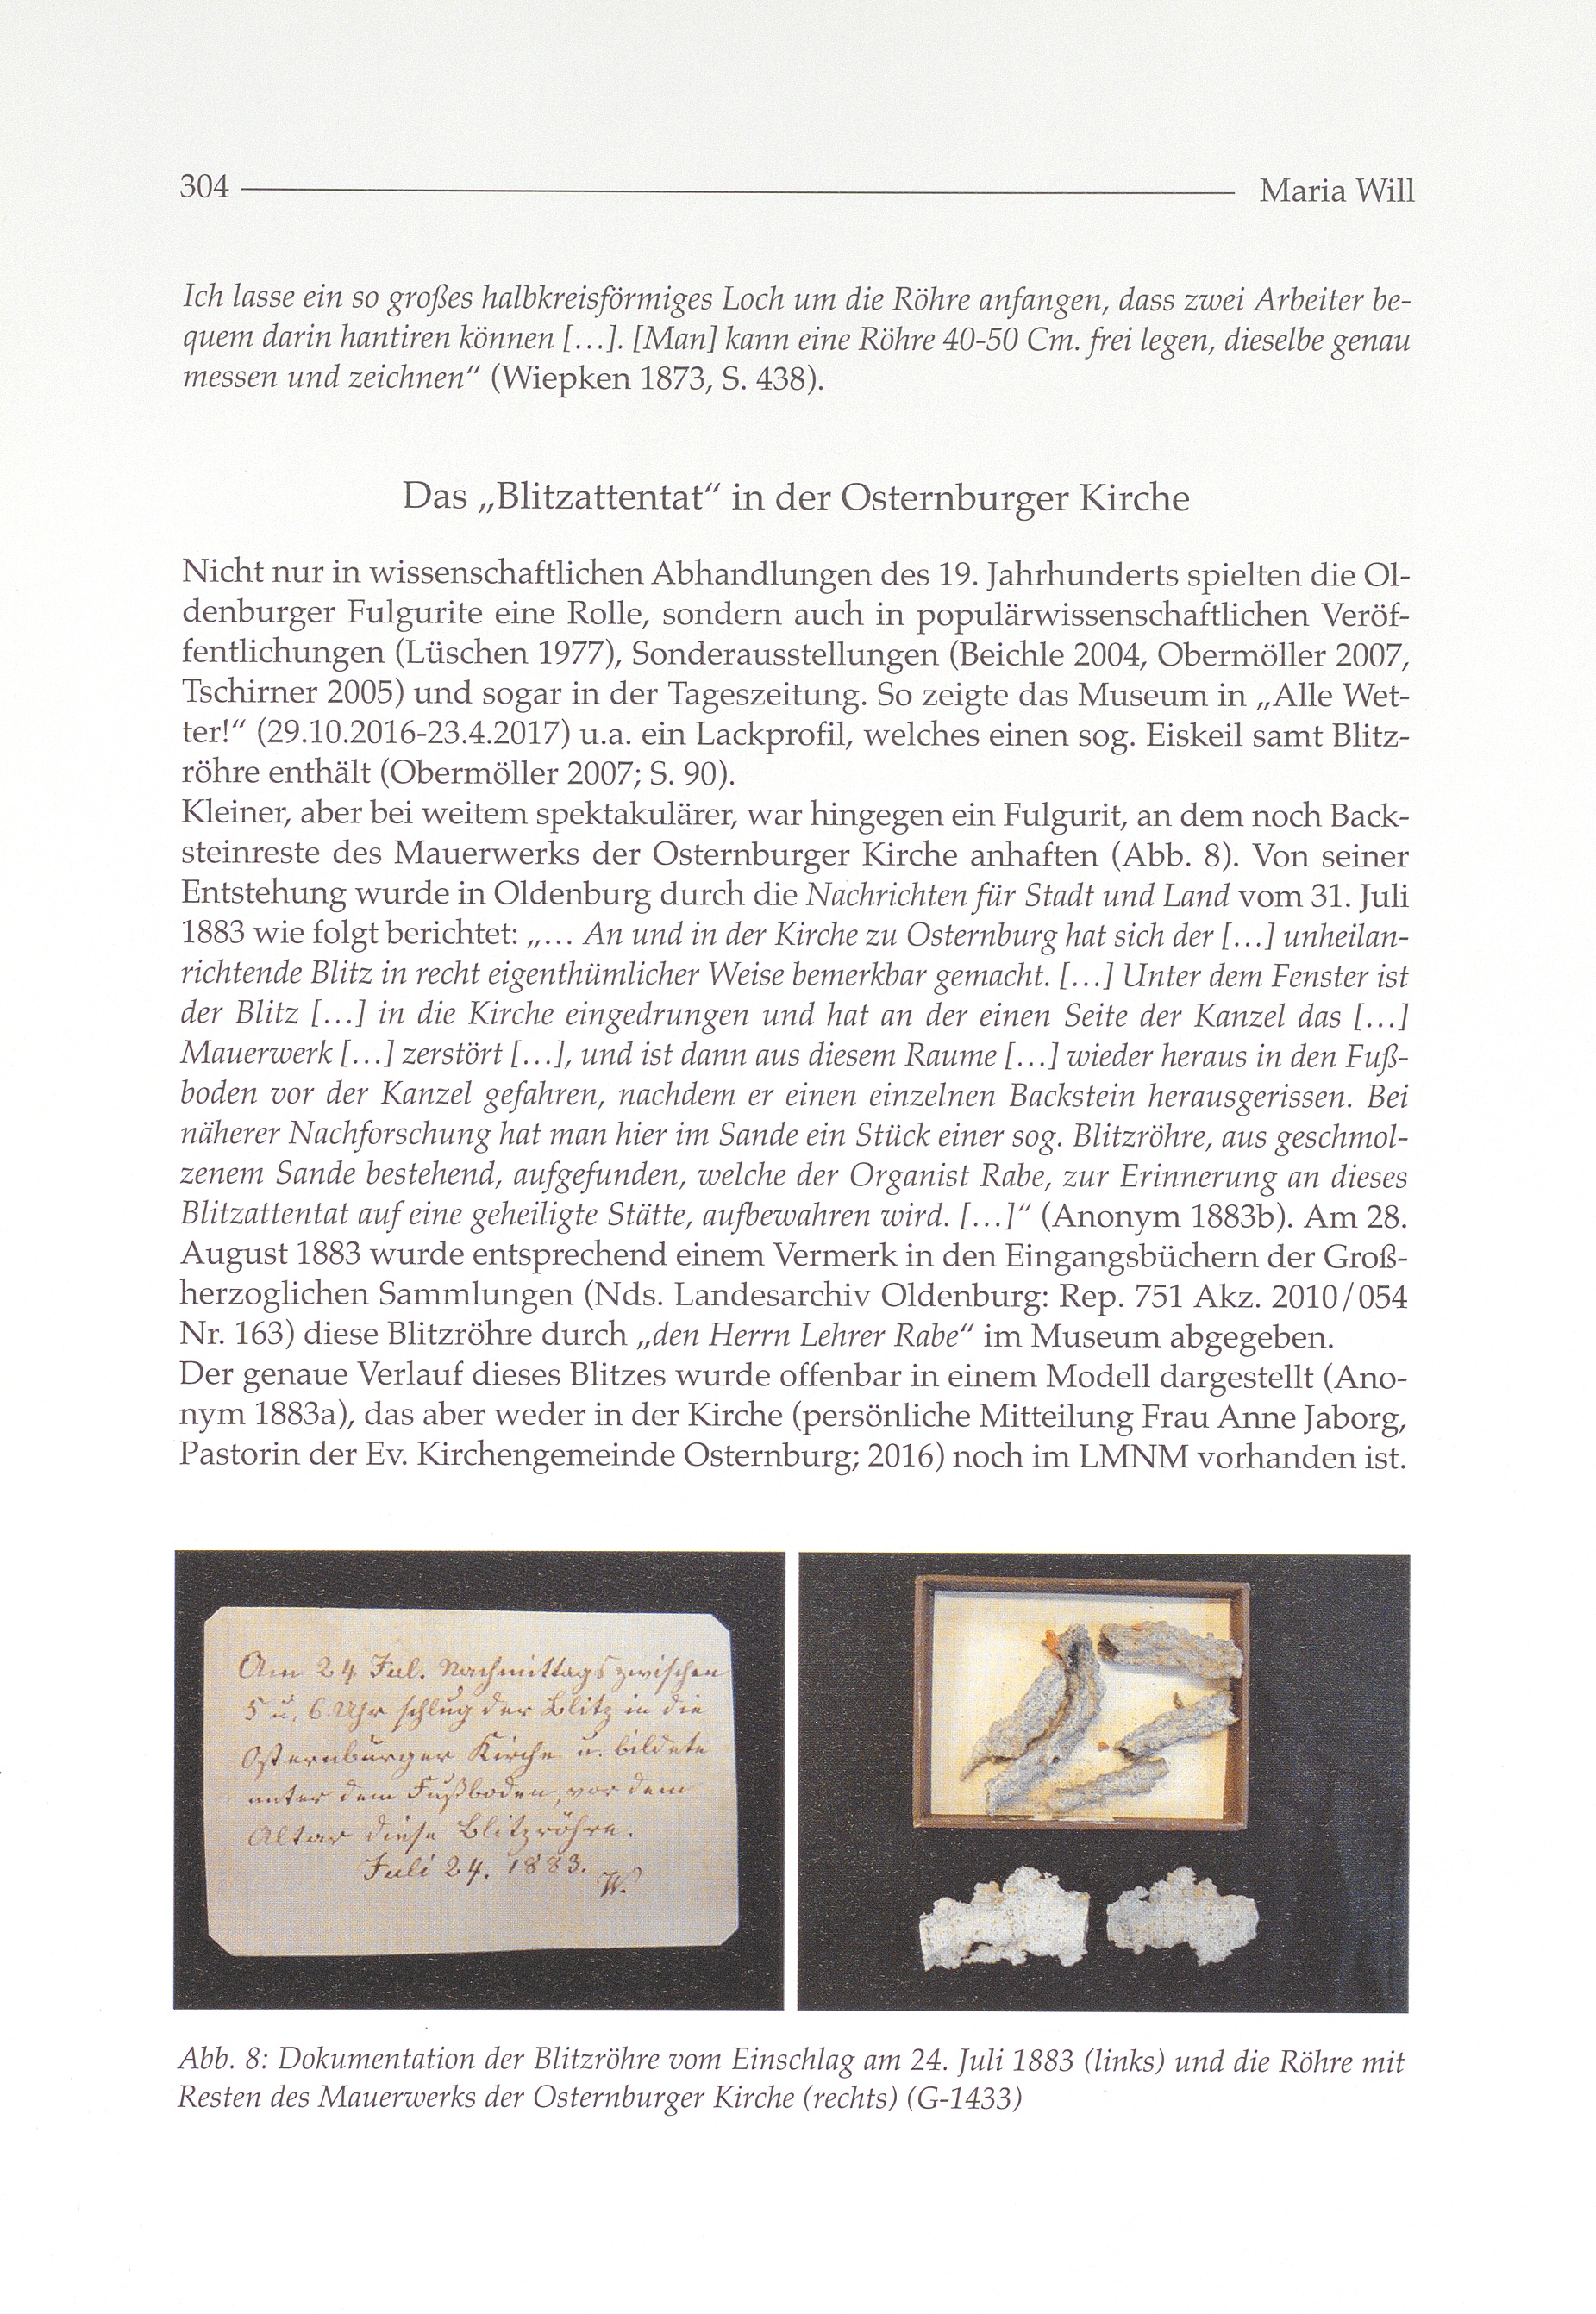 304 Maria Will
Ich lasse ein so großes halbkreisförmiges Loch um die Röhre anfangen, dass zwei Arbeiter be-
quem darin hantiren können […]. [Man] kann eine Röhre 40-50 Cm. frei legen, dieselbe genau
messen und zeichnen“ (Wiepken 1873, S. 438).
Das „Blitzattentat“ in der Osternburger Kirche
Nicht nur in wissenschaftlichen Abhandlungen des 19. Jahrhunderts spielten die Ol-
denburger Fulgurite eine Rolle, sondern auch in populärwissenschaftlichen Veröf-
fentlichungen (Lüschen 1977), Sonderausstellungen (Beichle 2004, Obermöller 2007,
Tschirner 2005) und sogar in der Tageszeitung. So zeigte das Museum in „Alle Wet-
ter!“ (29.10.2016-23.4.2017) u.a. ein Lackprofil, welches einen sog. Eiskeil samt Blitz-
röhre enthält (Obermöller 2007; S. 90).
Kleiner, aber bei weitem spektakulärer, war hingegen ein Fulgurit, an dem noch Back-
steinreste des Mauerwerks der Osternburger Kirche anhaften (Abb. 8). Von seiner
Entstehung wurde in Oldenburg durch die Nachrichten für Stadt und Land vom 31. Juli
1883 wie folgt berichtet: „… An und in der Kirche zu Osternburg hat sich der […] unheilan-
richtende Blitz in recht eigenthümlicher Weise bemerkbar gemacht. […] Unter dem Fenster ist
der Blitz […] in die Kirche eingedrungen und hat an der einen Seite der Kanzel das […]
Mauerwerk […] zerstört […], und ist dann aus diesem Raume […] wieder heraus in den Fuß-
boden vor der Kanzel gefahren, nachdem er einen einzelnen Backstein herausgerissen. Bei
näherer Nachforschung hat man hier im Sande ein Stück einer sog. Blitzröhre, aus geschmol-
zenem Sande bestehend, aufgefunden, welche der Organist Rabe, zur Erinnerung an dieses
Blitzattentat auf eine geheiligte Stätte, aufbewahren wird. […]“ (Anonym 1883b). Am 28.
August 1883 wurde entsprechend einem Vermerk in den Eingangsbüchern der Groß-
herzoglichen Sammlungen (Nds. Landesarchiv Oldenburg: Rep. 751 Akz. 2010/054
Nr. 163) diese Blitzröhre durch „den Herrn Lehrer Rabe“ im Museum abgegeben.
Der genaue Verlauf dieses Blitzes wurde offenbar in einem Modell dargestellt (Ano-
nym 1883a), das aber weder in der Kirche (persönliche Mitteilung Frau Anne Jaborg,
Pastorin der Ev. Kirchengemeinde Osternburg; 2016) noch im LMNM vorhanden ist.
Am 24 Jul. Nachmittags zwischen
5 u. 6 Uhr schlug der Blitz in die
Osternburger Kirche u. bildete
unter dem Fußboden, vor dem
Altar diese Blitzröhre.
Juli 24. 1883. W.
Abb. 8: Dokumentation der Blitzröhre vom Einschlag am 24. Juli 1883 (links) und die Röhre mit
Resten des Mauerwerks der Osternburger Kirche (rechts) (G-1433)